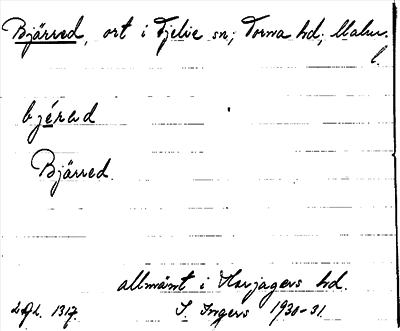 Bjärred, ort i Fjelie sn; Torna hd; Malm.
l.
bjérad
Bjärred.
allmänt i Harjagers hd.
1317. I. Ingers 1930-31.